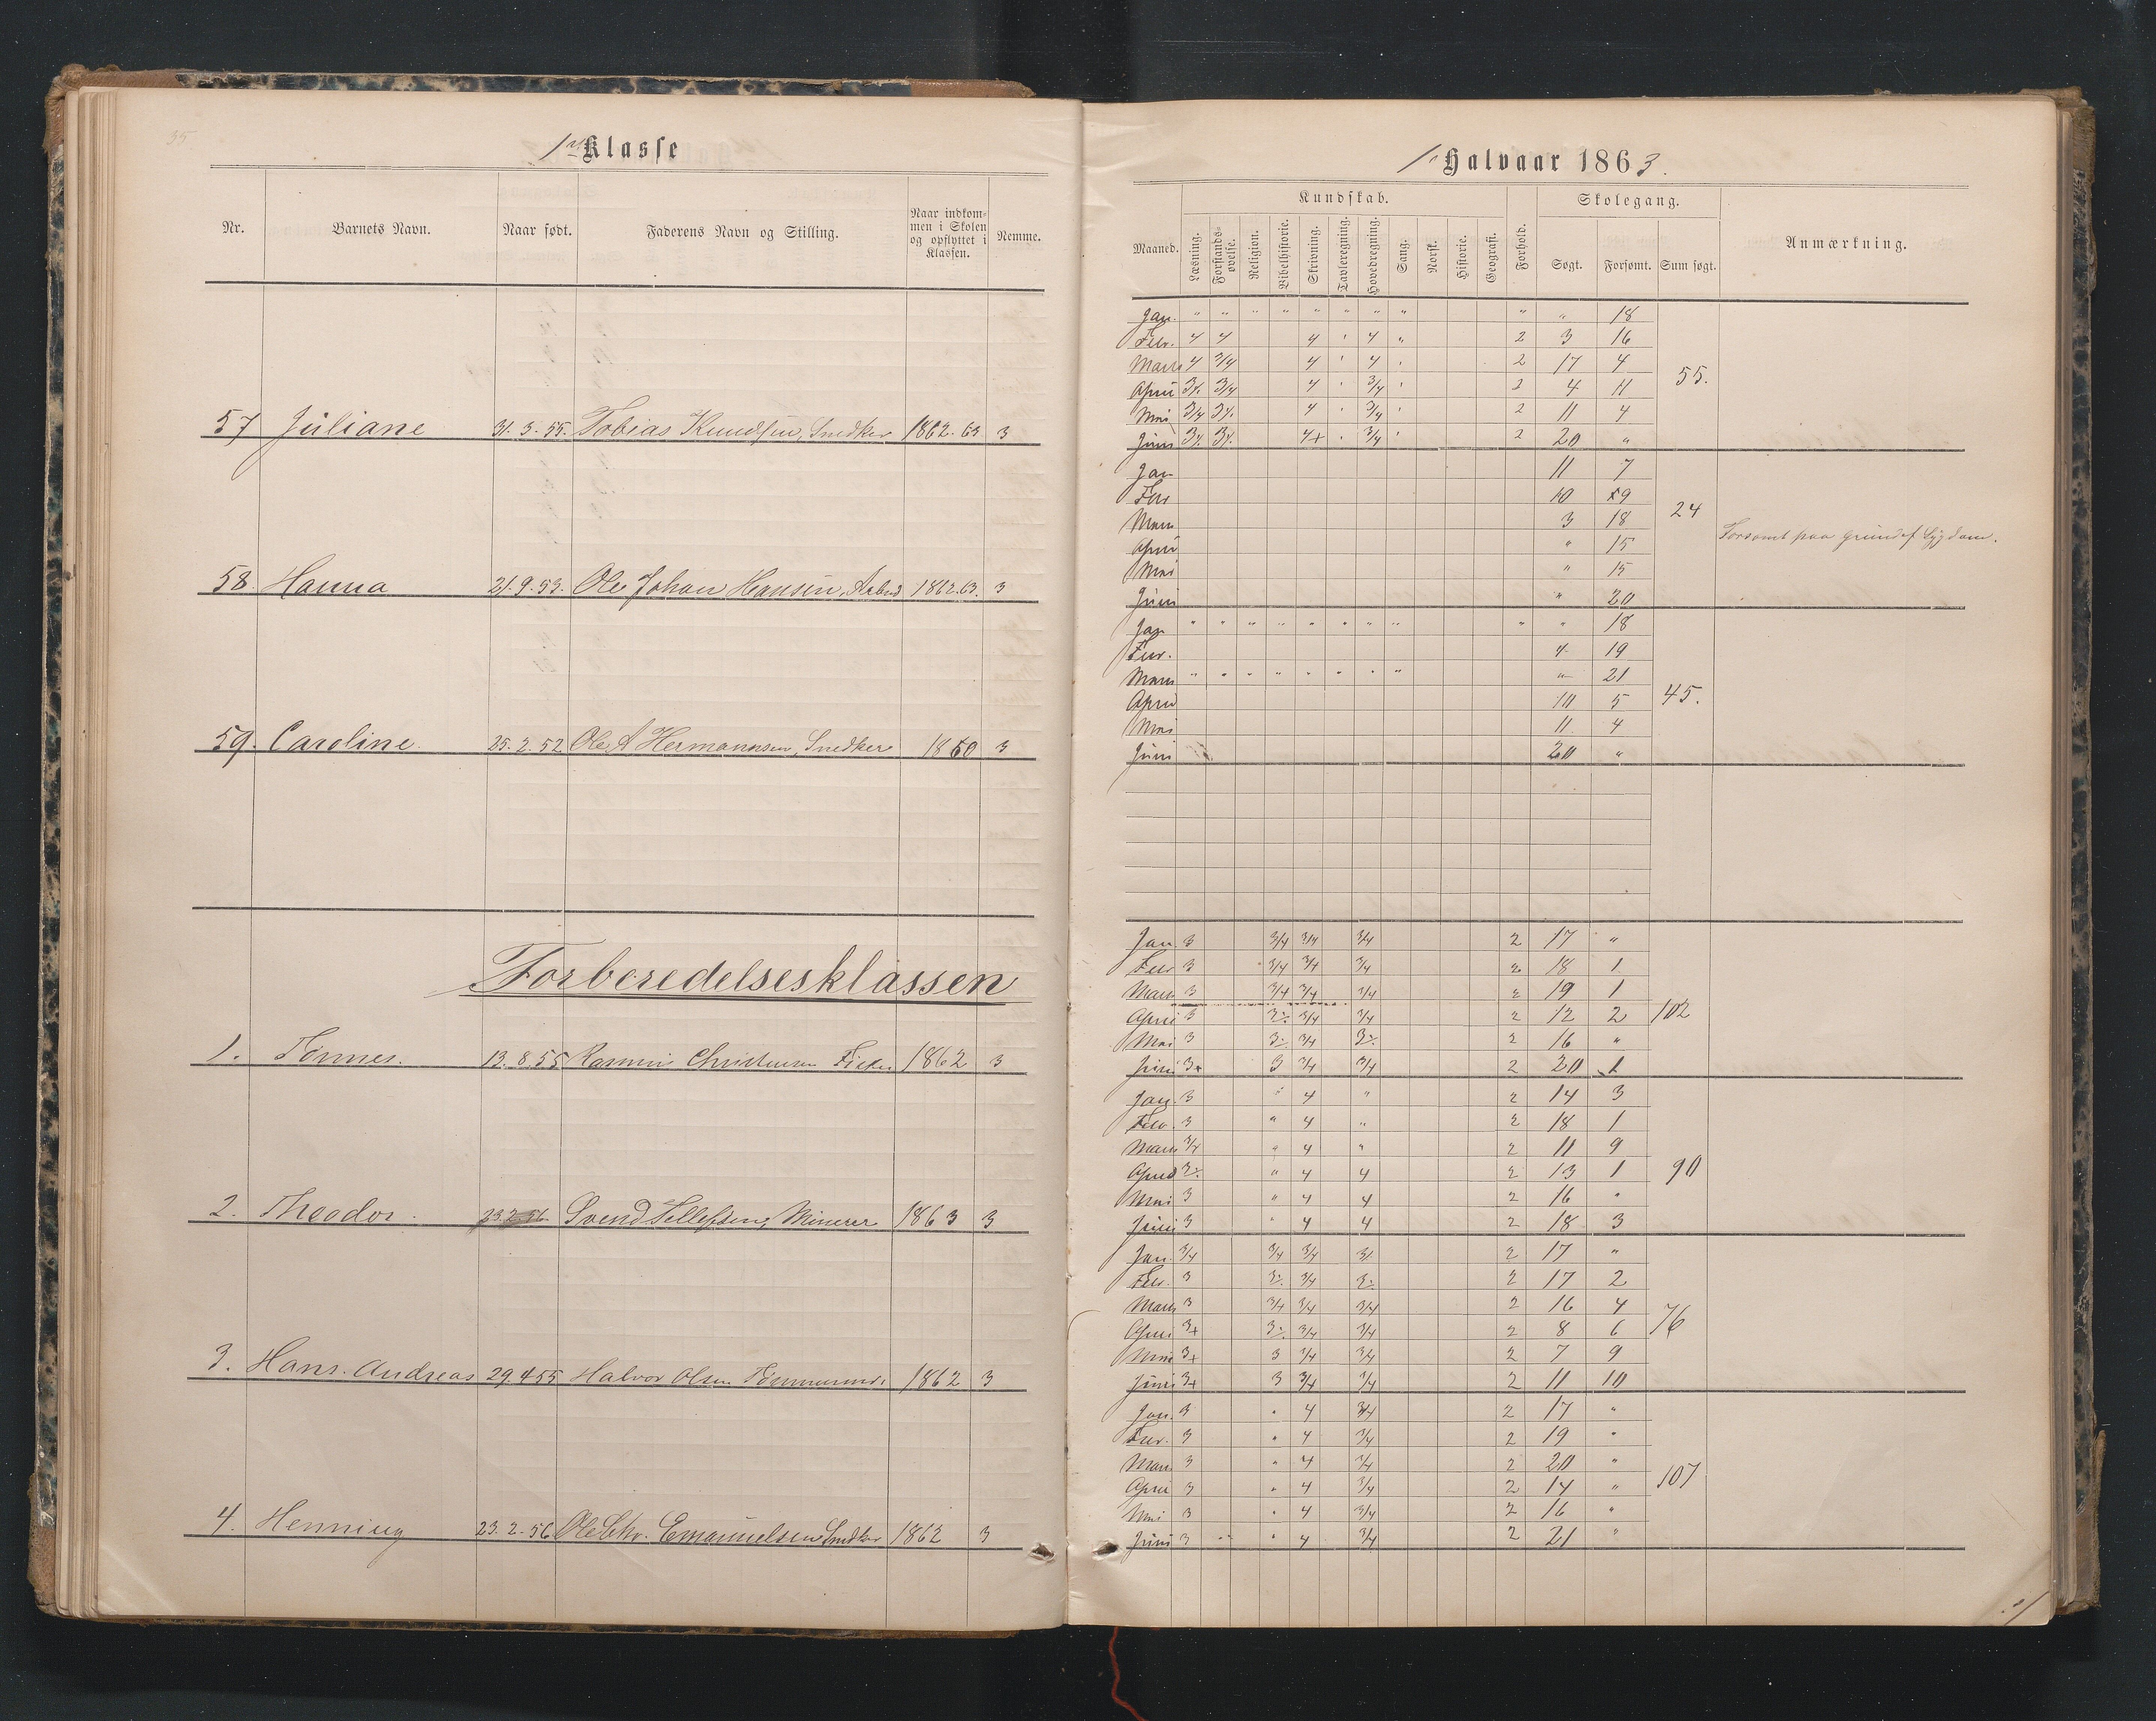 35
1ste Klasse
Nr. Barnets Navn. Naar født. Faderens Navn og Stilling. Naar indkommen i Skolen og opflyttet i Klassen. Nemme.
57 Juliane 31.3.55. Tobias Knudsen, Snedker 1862.63 3
58. Hanna 21.9.53. Ole Johan Hansen, Arbmd 1862.63. 3
59. Caroline. 25.2.52 Ole A Hermannsen, Snedker 1860 3
Forberedelsesklassen
1. Tønnes. 13.8.55 Christensen 1862 3
2. Theodor. 23.2.56 Svend Tellefsen, Minerer 1863 3
3. Hans. Andreas 29.4.55 Halvor Olsen Tømmerm. 1862 3
4. Henning 23.2.56 Ole Chr. Emanuelsen Snedker 1862 3
1ste Halvaar 1863.
Kundskab. Skolegang.
Maaned. Læsning. Forstandsøvelse. Religion. Bibelhistorie. Skrivning. Tavleregning. Hovedregning. Sang. Norsk. Historie. Geografi. Forhold. Søgt. Forsømt. Sum søgt. Anmærkning.
Jan. " " " " " " " " " " 18
Febr. 4 4 4 " 4 " 2 3 16
Marts 4 3/4 4 " 4 " 2 17 4
April 3/4 3/4 4 " 3/4 " 2 4 11 55.
Mai 3/4 3/4 4 " 3/4 " 2 11 4
Juni 3/4 3/4 4+ " 3/4 " 2 20 "
Jan 11 7
Febr 10 9
Marts 3 18 24
April " 15 Forsømt paa Grund af Sygdom.
Mai " 15
Juni " 20
Jan " " " " " " " " " " 18
Febr. 4 19
Marts " " " " " " " " " 21
April 10 5 45.
Mai 11 4
Juni 20 "
Jan. 3 3/4 3/4 3/4 2 17 "
Febr 3 3/4 3/4 3/4 2 18 1
Marts 3 3/4 3/4 3/4 2 19 1
April 3 3÷ 3/4 3/4 2 12 2 102
Mai 3 3÷ 3/4 3÷ 2 16 "
Juni 3+ 3 3/4 3/4 2 20 1
Jan. 3 " 4 " 2 14 3
Febr. 3 " 4 " 2 18 1
Marts 3/4 " 4 " 2 11 9
April 3÷ " 4 4 2 13 1 90
Mai 3 " 4 4 2 16 "
Juni 3 " 4 4 2 18 3
Jan. 3/4 3/4 3/4 3/ 2 17 "
Febr. 3 3÷ 3/4 3÷ 2 17 2
Marts 3 3/4 3/4 3/4 2 16 4
April 3+ 3÷ 3/4 3/4 2 8 6 76
Mai 3+ 3 3/4 3/4 2 7 9
Juni 3+ 3 3/4 3/4 2 11 10
Jan. 3 " 4 3/4 2 17 "
Febr. 3 " 4 3/4 2 19 "
Marts 3 " 4 3/4 2 20 "
April 3 " 4 3/4 2 14 " 107
Mai 3 " 4 3/4 2 16 "
Juni 3 " 4 3/4 2 21 "